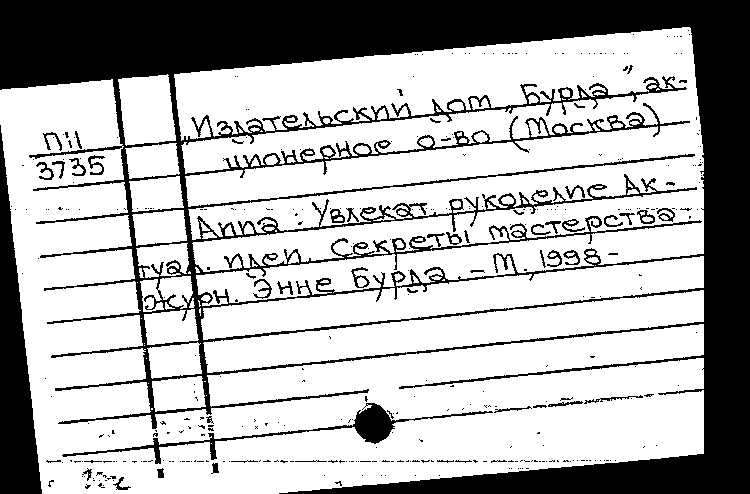 „Издательский дом „Бурда", ак-
ционерное о-во (Москва)
Пil
3735
Anna : Увлекат. рукоделие Ак-
туал. идеи. Секреты мастерства :
журн. Энне Бурда. – М., 1998–